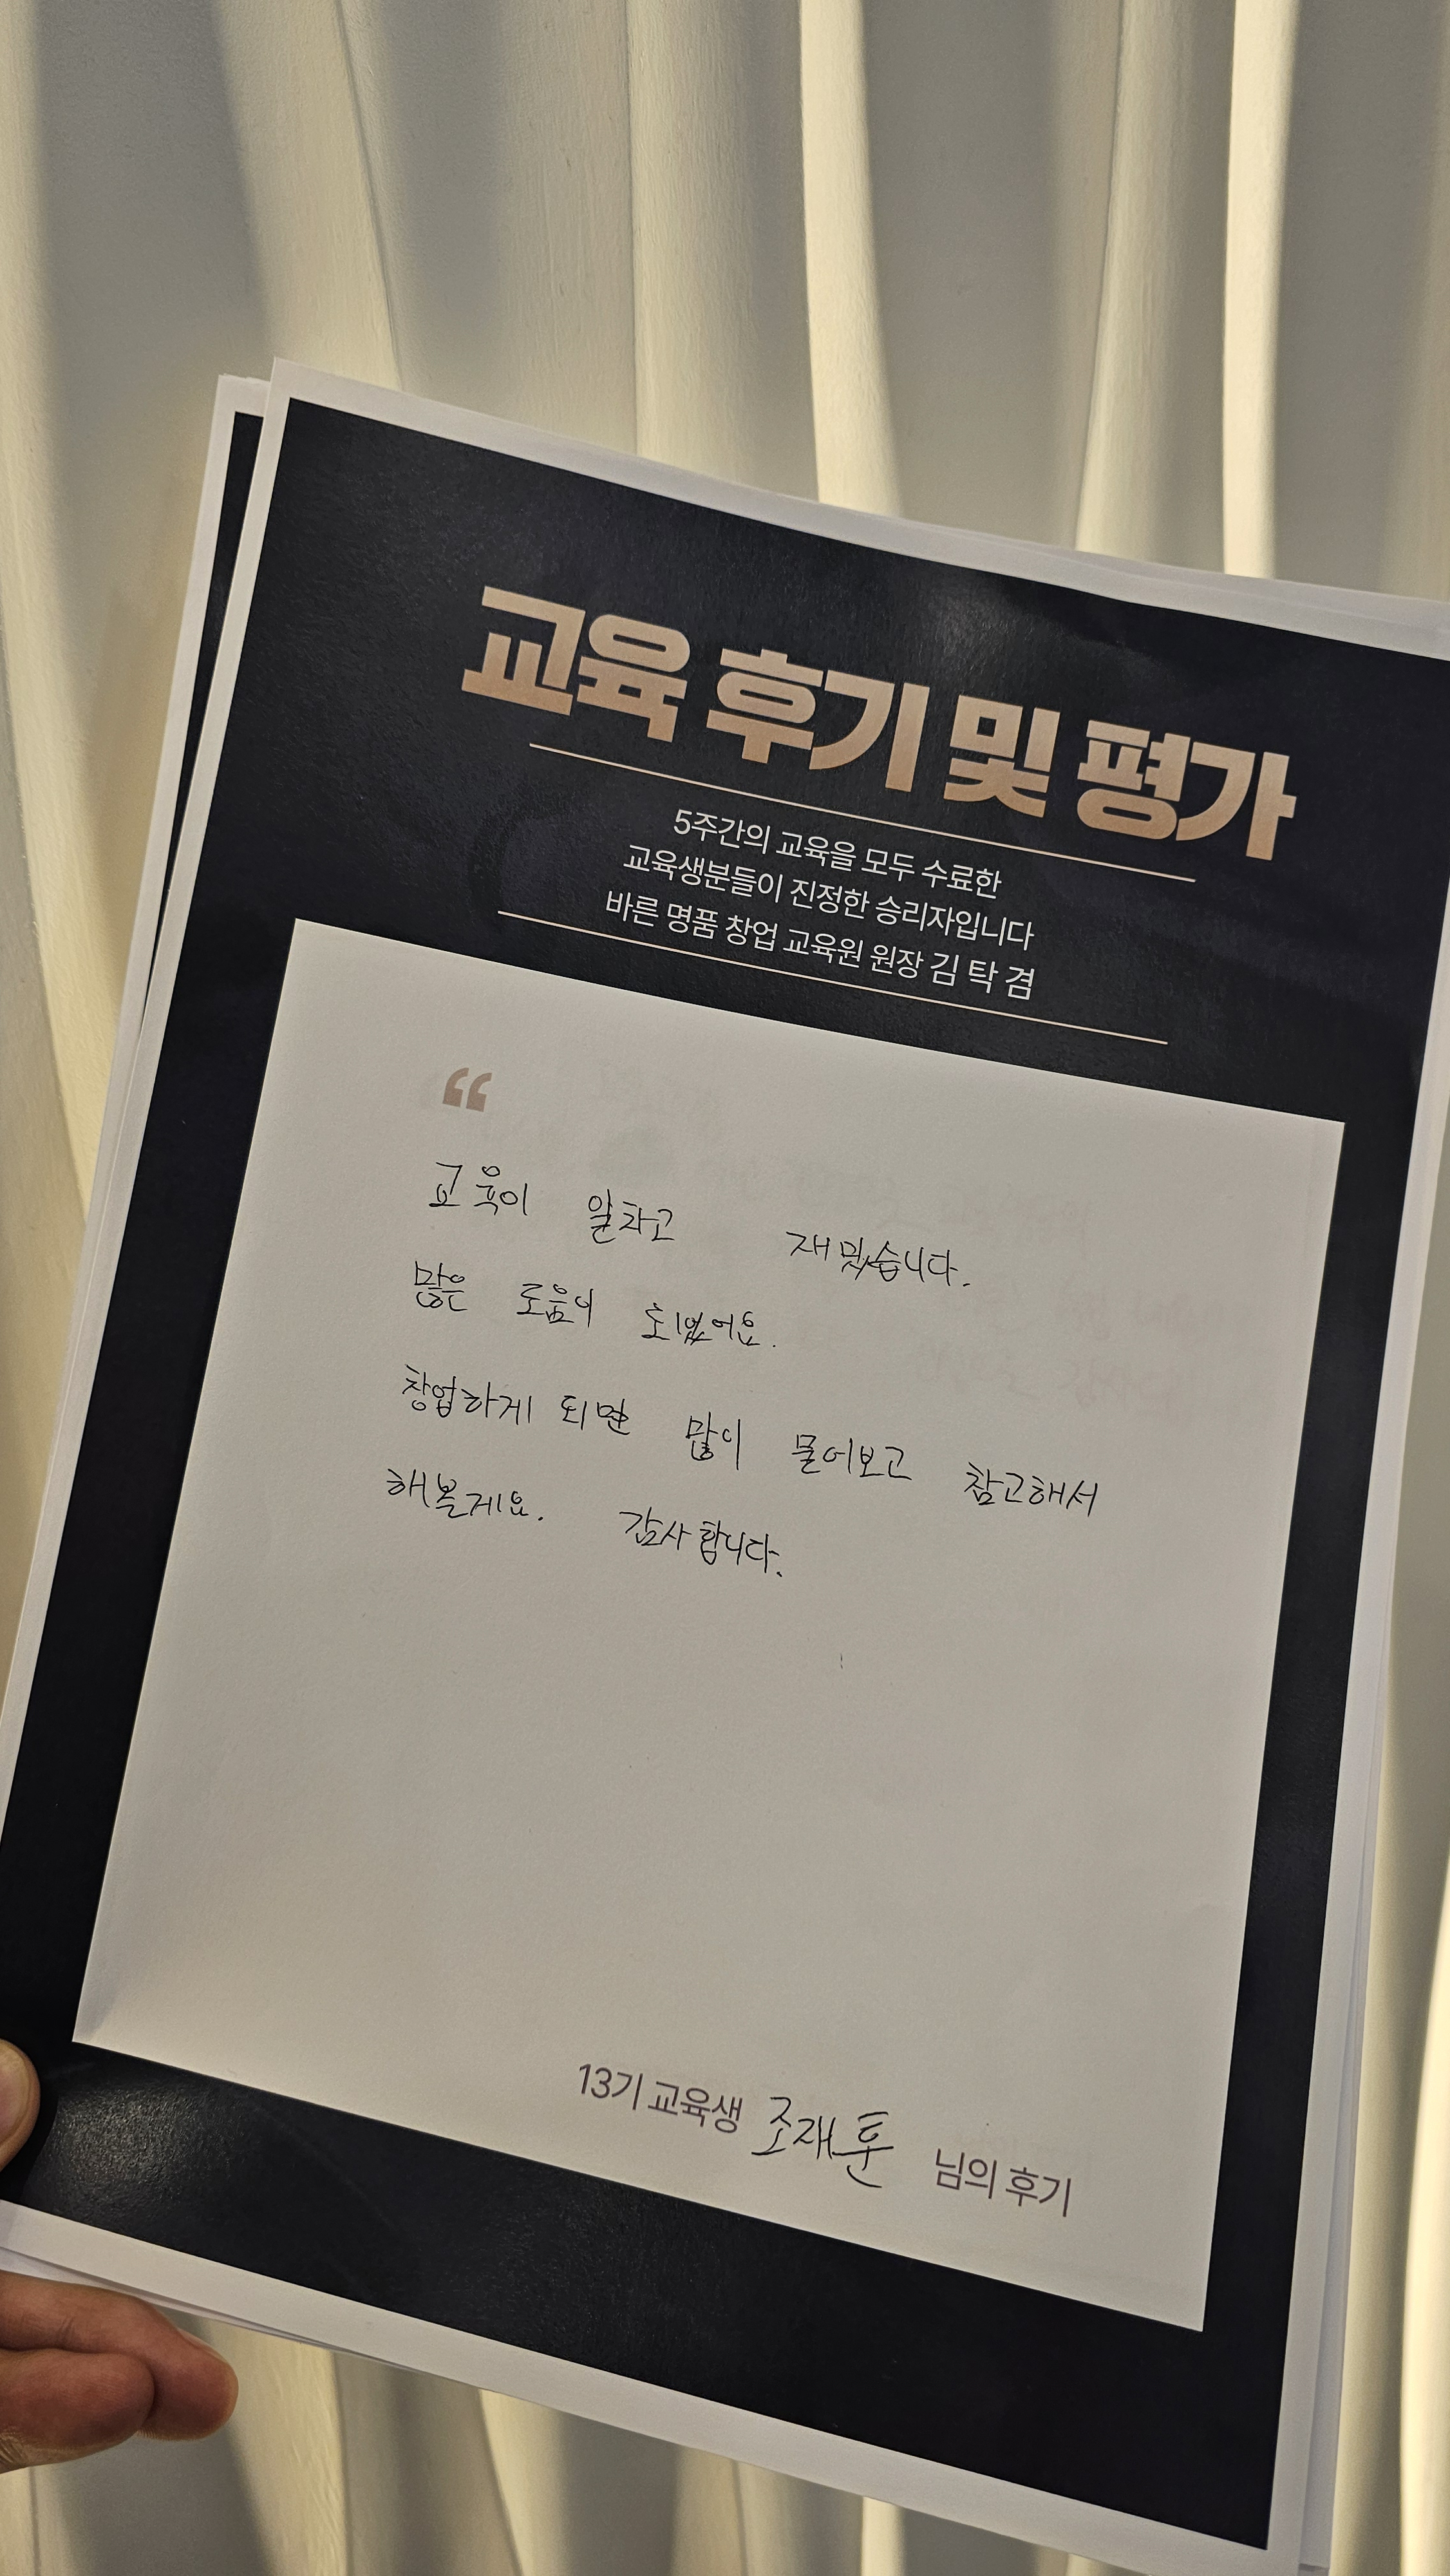 교육 후기 및 평가
5주간의 교육을 모두 수료한
교육생분들이 진정한 승리자입니다
바른 명품 창업 교육원 원장 김 탁 겸
“
교육이 알차고 재밌습니다.
많은 도움이 되었어요.
창업하게 되면 많이 물어보고 참고해서
해볼게요. 감사합니다.
13기 교육생 조재훈 님의 후기